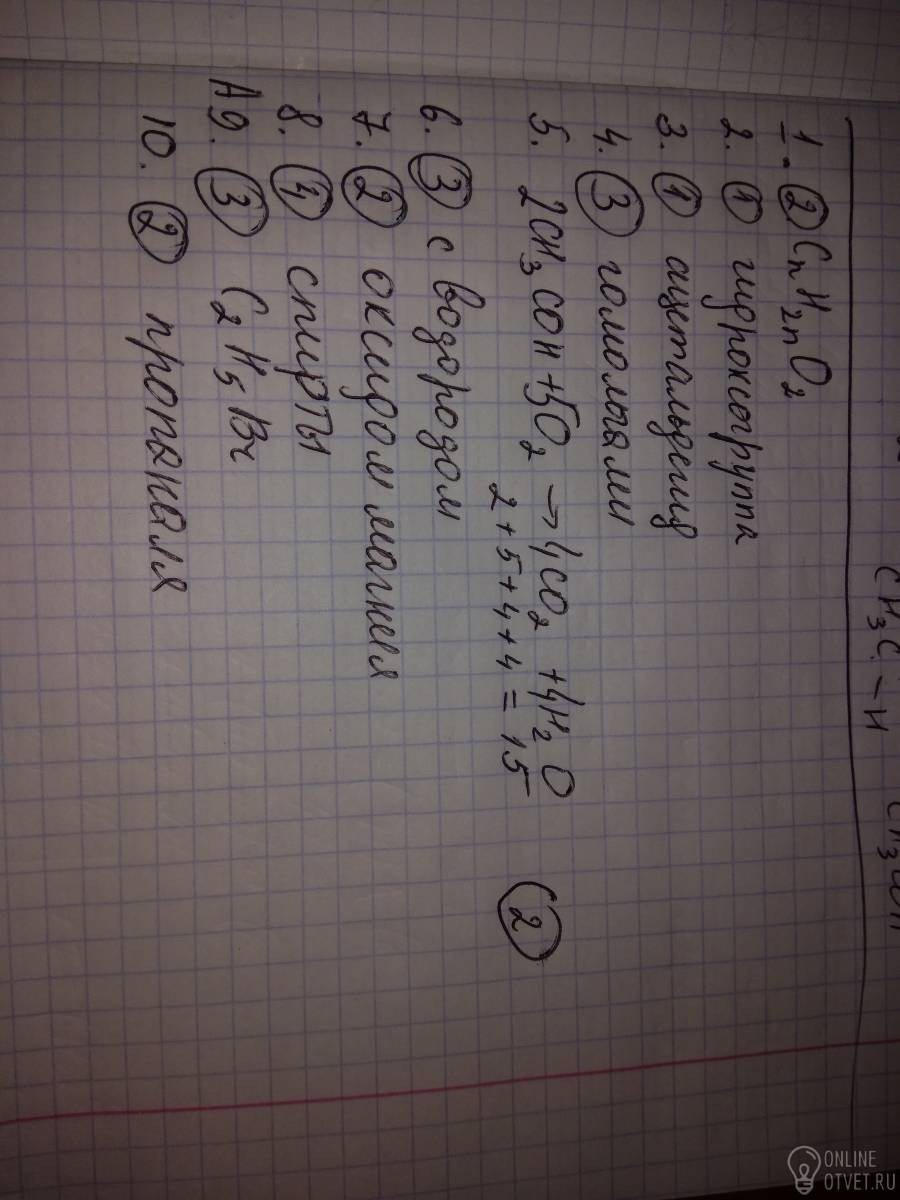 CH₃C - H
CH₃COH
1. ② CₙH₂ₙO₂
2. ① гидроксогруппа
3. ① ацетальдегид
4. ③ гомологами
5. 2CH₃COH + 5O₂ → 4CO₂ + 4H₂O
2 + 5 + 4 + 4 = 15 ②
6. ③ с водородом
7. ② оксидом магния
8. ④ спирты
А9. ③ C₂H₅Br
10. ② пропаналя
ONLINE
OTVET.RU